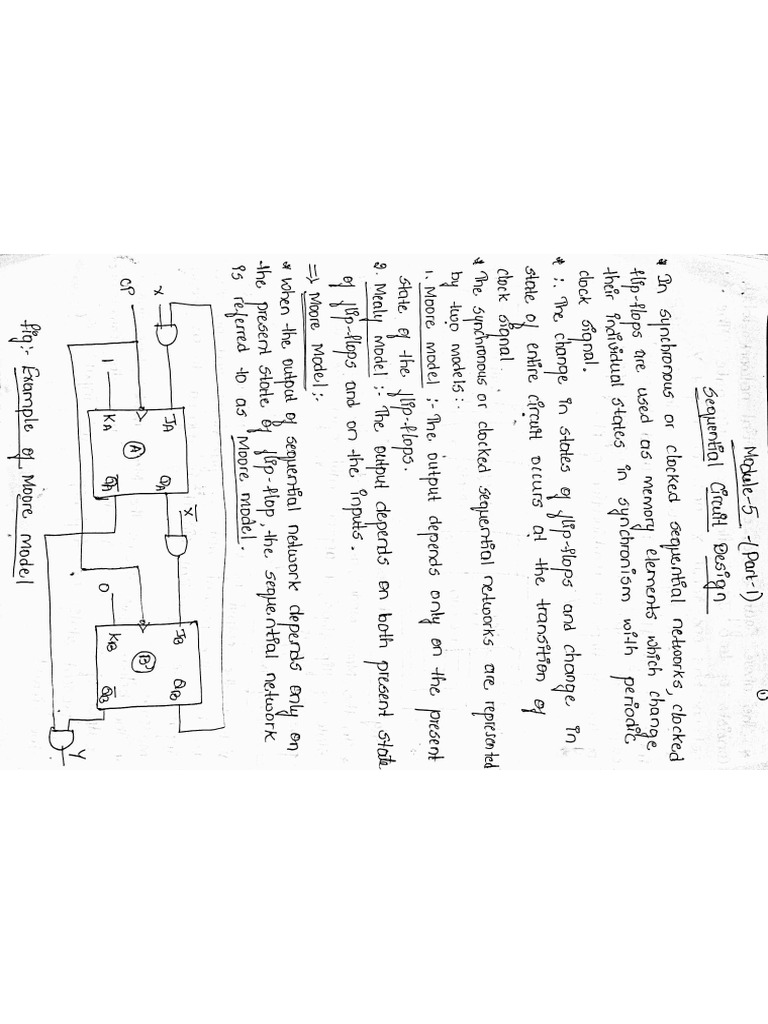 ①
Module-5 -(Part-1)
Sequential Circuit Design
* In synchronous or clocked sequential networks, clocked
flip-flops are used as memory elements which change
their individual states in synchronism with periodic
clock signal.
* ∴ The change in states of flip-flops and change in
state of entire circuit occurs at the transition of
clock signal.
* The synchronous or clocked sequential networks are represented
by two models:-
1. Moore model :- The output depends only on the present
state of the flip-flops.
2. Mealy model :- The output depends on both present state
of flip-flops and on the inputs.
⇒ Moore Model :-
* When the output of sequential network depends only on
the present state of flip-flop, the sequential network
is referred to as Moore model.
X
X̅
JA QA
JB QB
CP
A
B
1
KA Q̅A
0
KB Q̅B
Y
fig:- Example of Moore model